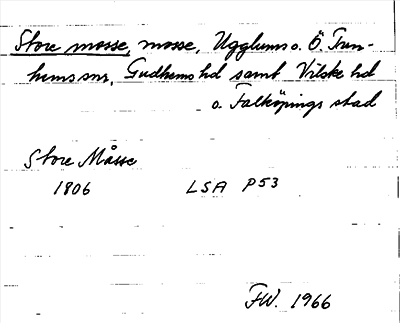 Store mosse, mosse, Ugglums o. Ö. Tun-
hems snr, Gudhems hd samt Vilske hd
o. Falköpings stad
Store Måsse
1806 LSA P53
FW. 1966